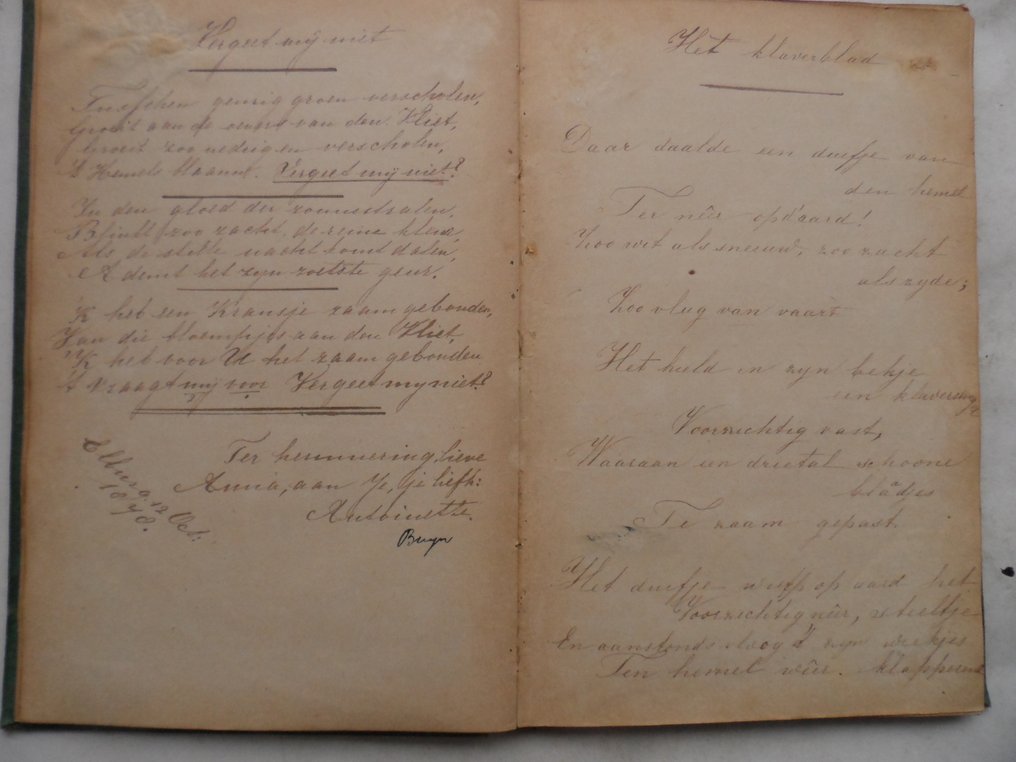 Vergeet mij niet
Tusschen geurig groen verscholen,
Groeit aan de oever van den Vliet,
Groeit zoo nedrig en verscholen,
't Hemels blaauw. Vergeet mij niet?
In den gloed der zonnestralen,
Blinkt zoo zacht, de reine kleur,
Als de stille nacht komt dalen,
Ademt het zijn zoetste geur.
'K heb een Kransje zaam gebonden,
Van die bloempjes aan den Vliet,
'K heb voor U het zaam gebonden
't Vraagt mij voor Vergeet mij niet?
Ter herinnering, lieve
Anna, aan je, je liefh:
Antoinette.
Bruyn
Elburg 12 Oct.
Het klaverblad
Daar daalde een duifje van
den hemel
Ter nêer op d'aard!
Zoo wit als sneeuw, zoo zacht
als zyde;
Zoo vlug van vaart
Het hield in zyn bekje
een
Voorzichtig vast,
Waaraan een drietal schoone
bladjes
Te zaam gepast
Het duifje wierp op aard het
Voorzichtig nêer, steeltje
En aanstonds vloog 't zyn wiekjes
Ten hemel wêer. klapperend